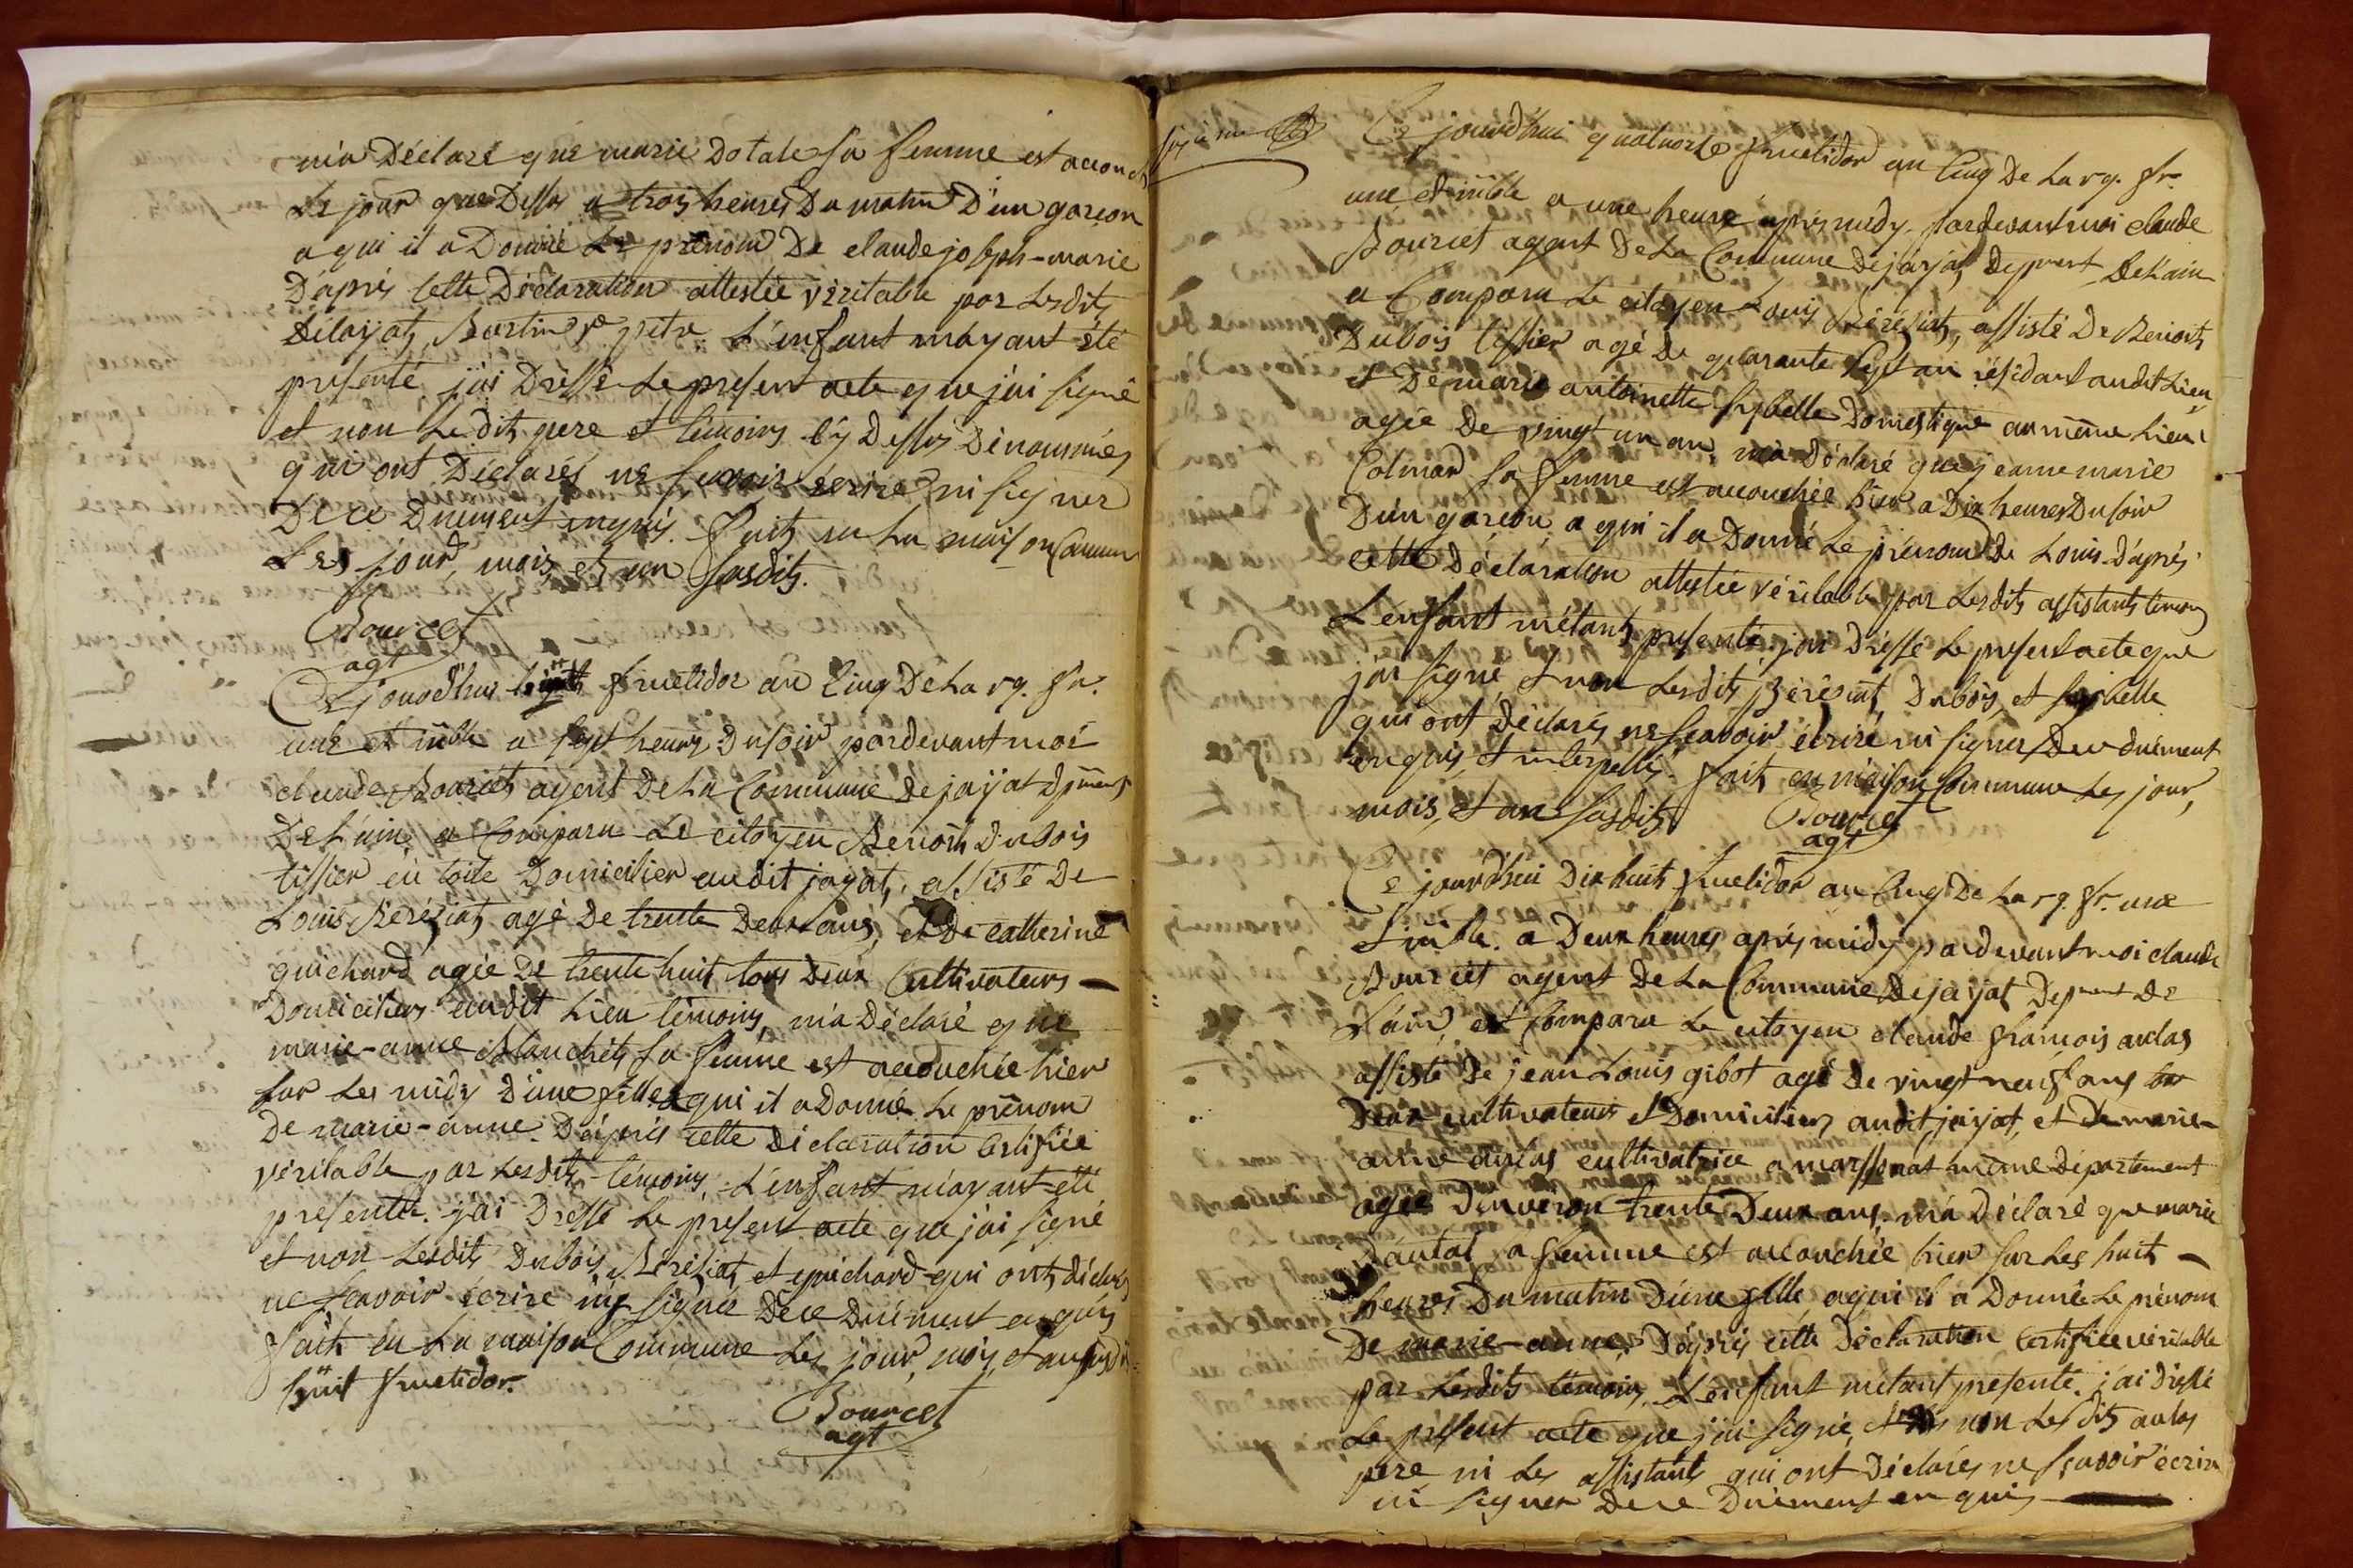 m'a Déclaré que marie Dotale sa femme est accouch
Le jour que Dessus a trois heures Du matin D'un garcon
a qui il a Donné Le prénom De claude joseph-marie
D'aprés cette Déclaration attestée véritable par Lesdits
Délayat, Bertin & petre. L'enfant m'ayant été
presenté, j'ai Dressé Le present acte que j'ai signé
et non Le dit pere et témoins cÿ Dessus Dénommés
qui ont Déclarés ne scavoir écrire ni signer
De ce Duement enquis. fait en La maison Commune
Les jour, mois et an susdits.
Bourcet
agt
Ce jourd'hui huit fructidor an Cinq De La rq. fr.
une et indble a sept heures Du soir pardevant moi
claude Bourcet agent De La Commune De jaÿat Dpment
De L'ain, a Comparu Le citoyen Benoit Dubois
tissier en toile Domicilier audit jayat, assisté De
Louis Béréziat, agé De trente Deux ans, et De catherine
guichard agée De trente huit, tous Deux Cultivateurs
Domiciliers audit Lieu témoins, m'a Déclaré que
marie-anne Blanchet, sa femme est accouchée hier
sur Les midÿ D'une fille a qui il a Donné Le prénom
De marie-anne. D'aprés cette Déclaration Certifiée
véritable par Lesdits témoins, L'enfant m'ayant été
presentée. j'ai Dressé Le present acte que j'ai signé
et non Lesdits Dubois, Béréziat, et guichard qui ont déclarés
ne scavoir écrire ni signer De ce Duement enquis
fait en La maison Commune Les jour, mois, et an susdits
huit fructidor.
Bourcet
agt
Ce jourd'hui quatorze fructidor an Cinq De La rq. fr.
une et indble a une heure aprés midy. pardevant moi claude
Bourcet agent De La Commune De jaÿat, Depment De L'ain
a Comparu Le citoyen Louis Béréziat, assisté De Benoit
Dubois tissier agé de quarante sept an résidant audit Lieu,
et De marie antoinette sybelle Domestique au même Lieu
agée De vingt un an, m'a Déclaré que jeanne marie
Colmard sa femme est accouchée hier a Dix heures Du soir
D'un garcon a qui il a Donné Le prénom De Louis. D'aprés
cette Déclaration attestée véritable par Lesdits assistants temoins
L'enfant m'étant, presenté. j'ai Dressé Le present acte que
j'ai signé et non Lesdits, Béréziat, Dubois, et sybelle
qui ont Déclarés ne scavoir écrire ni signer De ce duement
enquis, et interpellés. fait en maison Commune Les jour,
mois, et an susdits
Bourcet
agt
Ce jourd'hui Dix huit fructidor an Cinq De La rq. fr. une
et indble. a Deux heures aprés midÿ pardevant moi claude
Bourcet agent De La Commune De jaÿat Depment De
L'ain, est Comparu Le citoyen claude francois aulas
assisté De jean Louis gibot agé De vingt neuf ans tous
Deux cultivateurs et Domiciliers audit jaÿat, et De marie-
anne aulas cultivatrice a marssonat même Département
agée D'environ trente Deux ans, m'a Déclaré que marie
Dautal sa femme est accouchée hier sur Les huit
heures Du matin D'une fille, a qui il a Donné Le prénom
De marie-anne. D'aprés cette Déclaration Certifiée véritable
par Lesdits témoins, L'enfant m'etant presenté. j'ai dressé
Le present acte que j'ai signé, et non Les dits aulas
pere, ni Les assistants qui ont Déclarés ne scavoir écrire
ni signer De ce Duement enquis